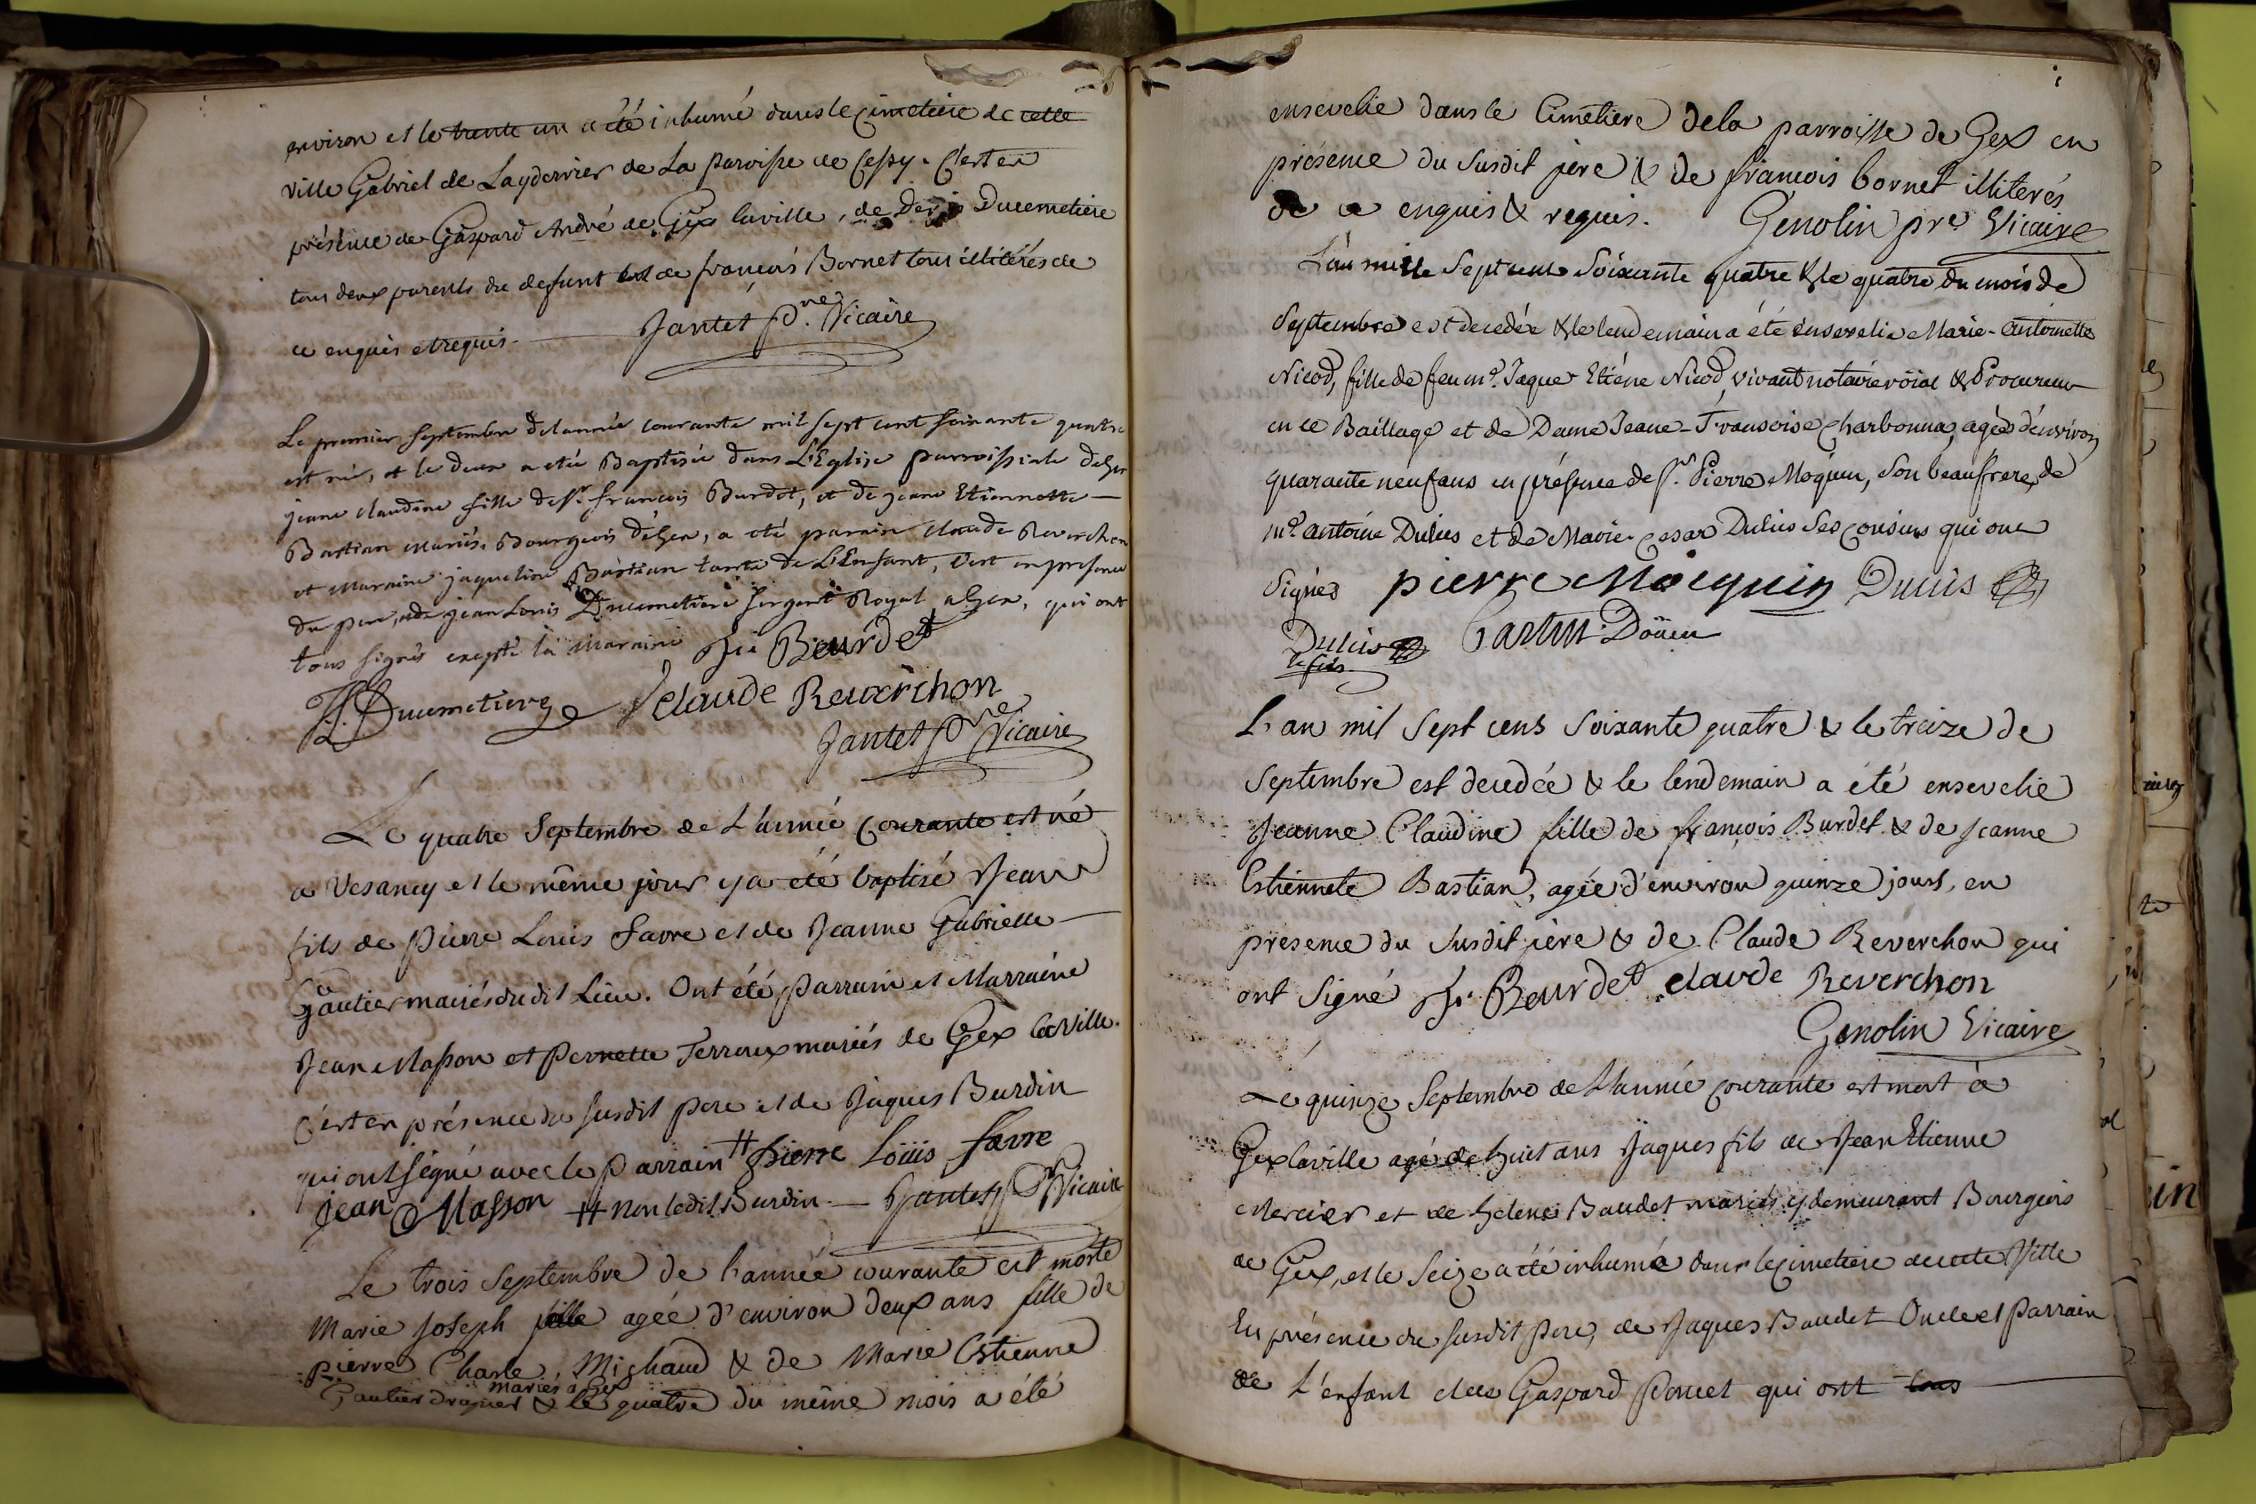 environ et le trente un a été inhumé dans le Cimetiere de cette
ville Gabriel de Layderrier de La paroisse de Cessy. C'est en
présence de Gaspard André de Gex la ville, de Denis Ducemetiere
tous deux parents du defunt et de françois Bornet tous illitérés de
ce enquis et requis. Jantet Ptre. Vicaire
Le premier Septembre de l'année courante mil sept cent soixante quatre
est née, et le deux a été Baptisée dans L'Eglise parroissiale de Gex
jeanne claudine fille de Sr. françois Burdet, et de jeane Etiennette
Bastian mariés Bourgeois de Gex, a été parain claude Reverchon
et Maraine jaqueline Bastian tante de L'Enfant, C'est en presence
du pere, et de jean Louis Ducimetiere sergent Royal a Gex, qui ont
tous signés excepté la maraine fr. Beurdet
J L Ducimetiere Claude Reverchon
Jantet Ptre Vicaire
Le quatre Septembre de L'année courante est né
a Vesancy et le même jour y a été baptisé Jean
fils de Pierre Louis Favre et de Jeanne Gabrielle
Gautier mariés dudit Lieu. Ont été Parrain et Marraine
Jean Masson et Pernette Terroux mariés de Gex la Ville.
C'est en présence du susdit Pere et de Jaques Burdin
qui ont signé avec le Parrain # pierre Louis favre
jean Masson # non ledit Burdin. Jantet Ptre Vicaire
Le trois Septembre de l'année courante est morte
Marie Joseph fille agée d'environ deux ans fille de
pierre Charle Michaud & de Marie Estienne
mariés a Gex
Gautier & le quatre du même mois a été
ensevelie dans le Cimetiere de la parroisse de Gex en
présence du susdit père & de françois bornet illiterés
de ce enquis & requis. Genolin pre Vicaire
L'an mille Sept cents Soixante quatre & le quatre du mois de
Septembre est decedée & le lendemain a été ensevelie Marie-Antoinette
Nicod, fille de feu me. Jaque Etiéne Nicod, vivant notaire röial & Procureur
en ce Baillage et de Dame Jeane-Françoise Charbonna, agée d'environ
quarante neuf ans en présence de Sr. Pierre Moquin, son beaufrere, de
me. antoine Dulcis et de Marie-Cesar Dulcis ses cousins qui ont
Signés pierre Mocquin Dulcis
Dulcis Castin Doÿen
le fils
L'an mil Sept cens Soixante quatre & le treize de
Septembre est decedée & le lendemain a été ensevelie
Jeanne Claudine fille de françois Burdet & de Jeanne
Estiennete Bastian, agée d'environ quinze jours, en
présence du susdit père & de Claude Reverchon qui
ont Signé fr. Beurdet claude Reverchon
Genolin Vicaire
Le quinze Septembre de L'année courante est mort à
Gex la ville agé de huit ans Jaques fils de Jean Etienne
Mercier et de helene Baudet mariés y demeurant Bourgeois
de Gex, et le Seize a été inhumé dans le Cimetiere de cette Ville
En présence du susdit Pere, de Jaques Baudet Oncle et Parrain
de L'enfant et de Gaspard Poncet qui ont tous